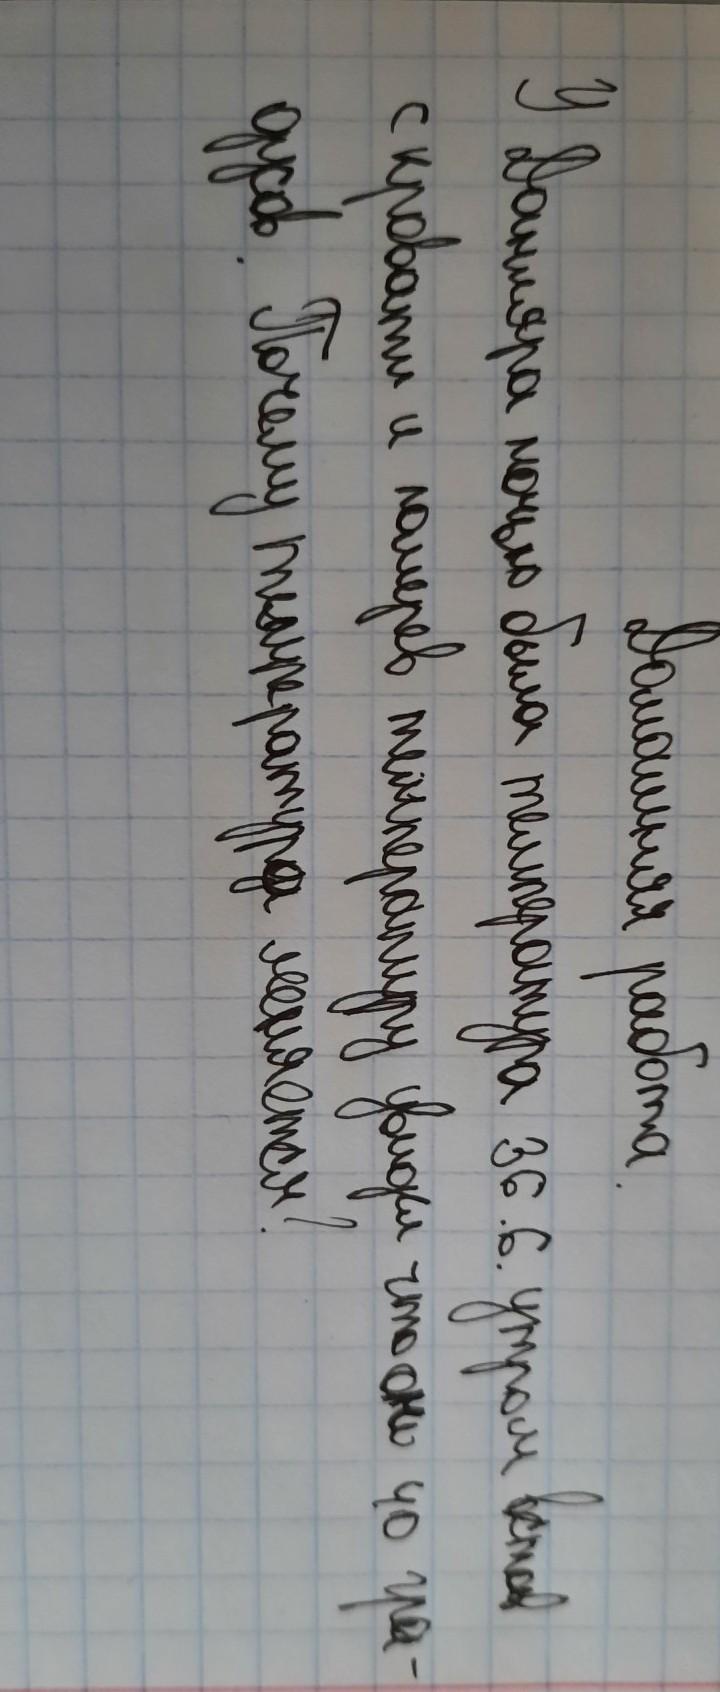 Домашняя работа.
У Данияра ночью была температура 36.6. утром встав
с кровати и померев температуру увидел что она 40 гра-
дусов. Почему температура меняется?